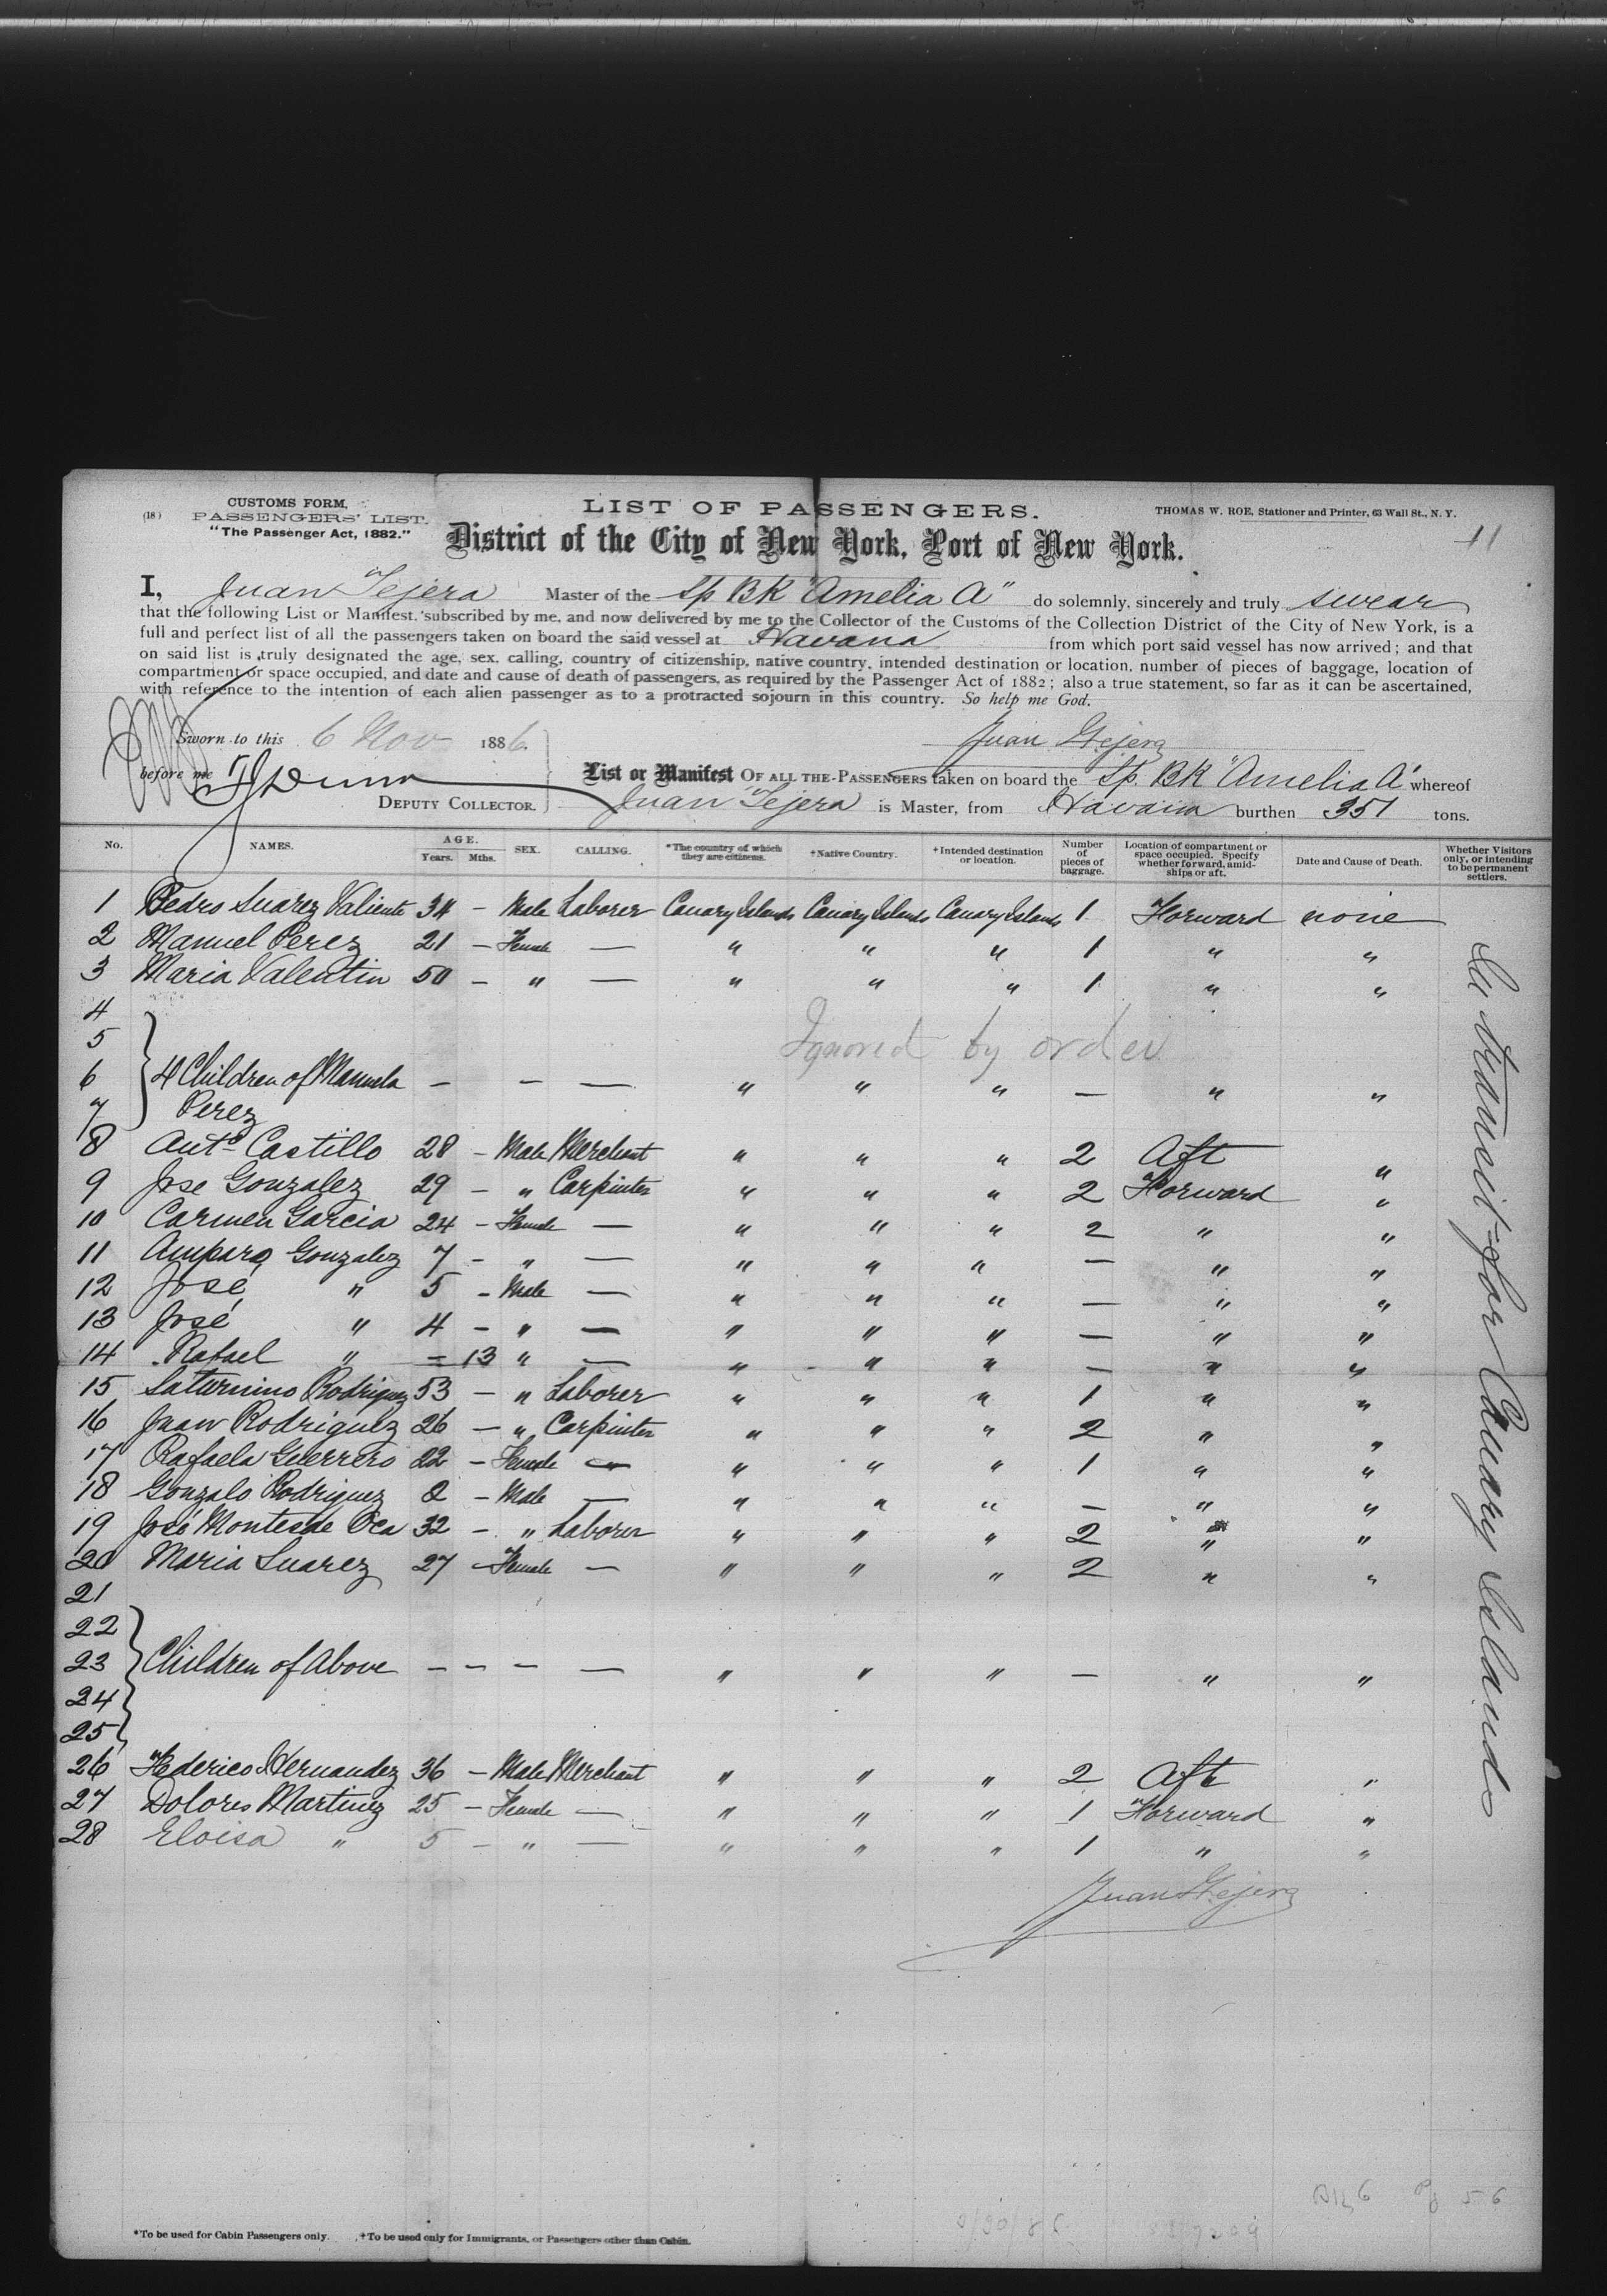 (18)
CUSTOMS FORM,
PASSENGERS' LIST.
"The Passenger Act, 1882."
LIST OF PASSENGERS.
THOMAS W. ROE, Stationer and Printer, 63 Wall St., N. Y.
11
District of the City of New York, Port of New York.
I, Juan Tejera Master of the Sp BK "Amelia A" do solemnly, sincerely and truly swear
that the following List or Manifest, subscribed by me, and now delivered by me to the Collector of the Customs of the Collection District of the City of New York, is a
full and perfect list of all the passengers taken on board the said vessel at Havana from which port said vessel has now arrived; and that
on said list is truly designated the age, sex, calling, country of citizenship, native country, intended destination or location, number of pieces of baggage, location of
compartment or space occupied, and date and cause of death of passengers, as required by the Passenger Act of 1882; also a true statement, so far as it can be ascertained,
with reference to the intention of each alien passenger as to a protracted sojourn in this country. So help me God.
Sworn to this 6 Nov 1886.
Juan Tejera
before me
DEPUTY COLLECTOR.
List or Manifest OF ALL THE PASSENGERS taken on board the Sp. BK "Amelia A" whereof
Juan Tejera is Master, from Havana burthen 351 tons.
No. NAMES. AGE. Years. Mths. SEX. CALLING. *The country of which they are citizens. +Native Country. +Intended destination or location. Number of pieces of baggage. Location of compartment or space occupied. Specify whether forward, amidships or aft. Date and Cause of Death. Whether Visitors only, or intending to be permanent settlers.
1 Pedro Suarez Valiente 34 – Male Laborer Canary Islands Canary Islands Canary Islands 1 Forward none
2 Manuel Perez 21 – Female — " " " 1 " "
3 Maria Valentin 50 – " — " " " 1 " "
4
Ignored by order
5
6 4 Children of Manuela — – — " " " — " "
7 Perez
8 Anto Castillo 28 – Male Merchant " " " 2 Aft "
9 Jose Gonzalez 29 – " Carpinter " " " 2 Forward "
10 Carmen Garcia 24 – Female — " " " 2 " "
11 Amparo Gonzalez 7 – " — " " " — " "
12 José " 5 – Male — " " " — " "
13 José " 4 – " — " " " — " "
14 Rafael " – 13 " — " " " — " "
15 Saturnino Rodriguez 53 – " Laborer " " " 1 " "
16 Juan Rodriguez 26 – " Carpinter " " " 2 " "
17 Rafaela Guerrero 22 – Female — " " " 1 " "
18 Gonzalo Rodriguez 2 – Male — " " " — " "
19 José Montes de Oca 32 – " Laborer " " " 2 " "
20 Maria Suarez 27 – Female — " " " 2 " "
21
22
23 Children of Above – – – — " " " — " "
24
25
26 Federico Hernandez 36 – Male Merchant " " " 2 Aft "
27 Dolores Martinez 25 – Female — " " " 1 Forward "
28 Eloisa " 5 – " — " " " 1 " "
In transit for Canary Islands
Juan Tejera
*To be used for Cabin Passengers only. +To be used only for Immigrants, or Passengers other than Cabin.